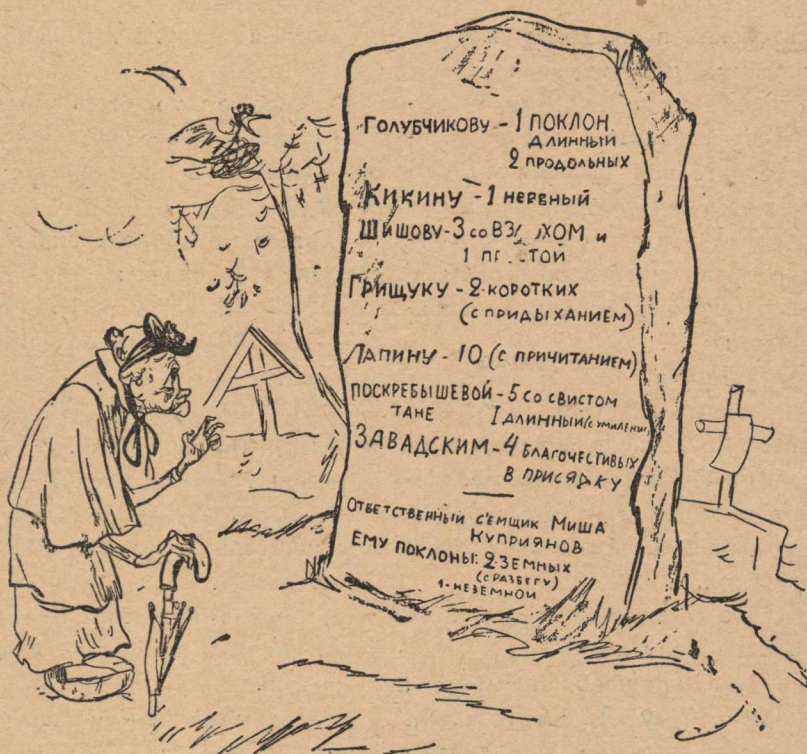 Голубчикову - 1 поклон
длинный
2 продольных
Кикину - 1 нервный
Шишову - 3 со и
1
Грищуку - 2 коротких
(с придыханием)
Лапину - 10 (с причитанием)
Поскребышевой - 5 со свистом
Тане 1 длинный (с
Завадским - 4 благочестивых
в присядку
Ответственный с'емщик Миша
Куприянов
Ему поклоны: 2 земных
(с разбегу)
1 - неземной